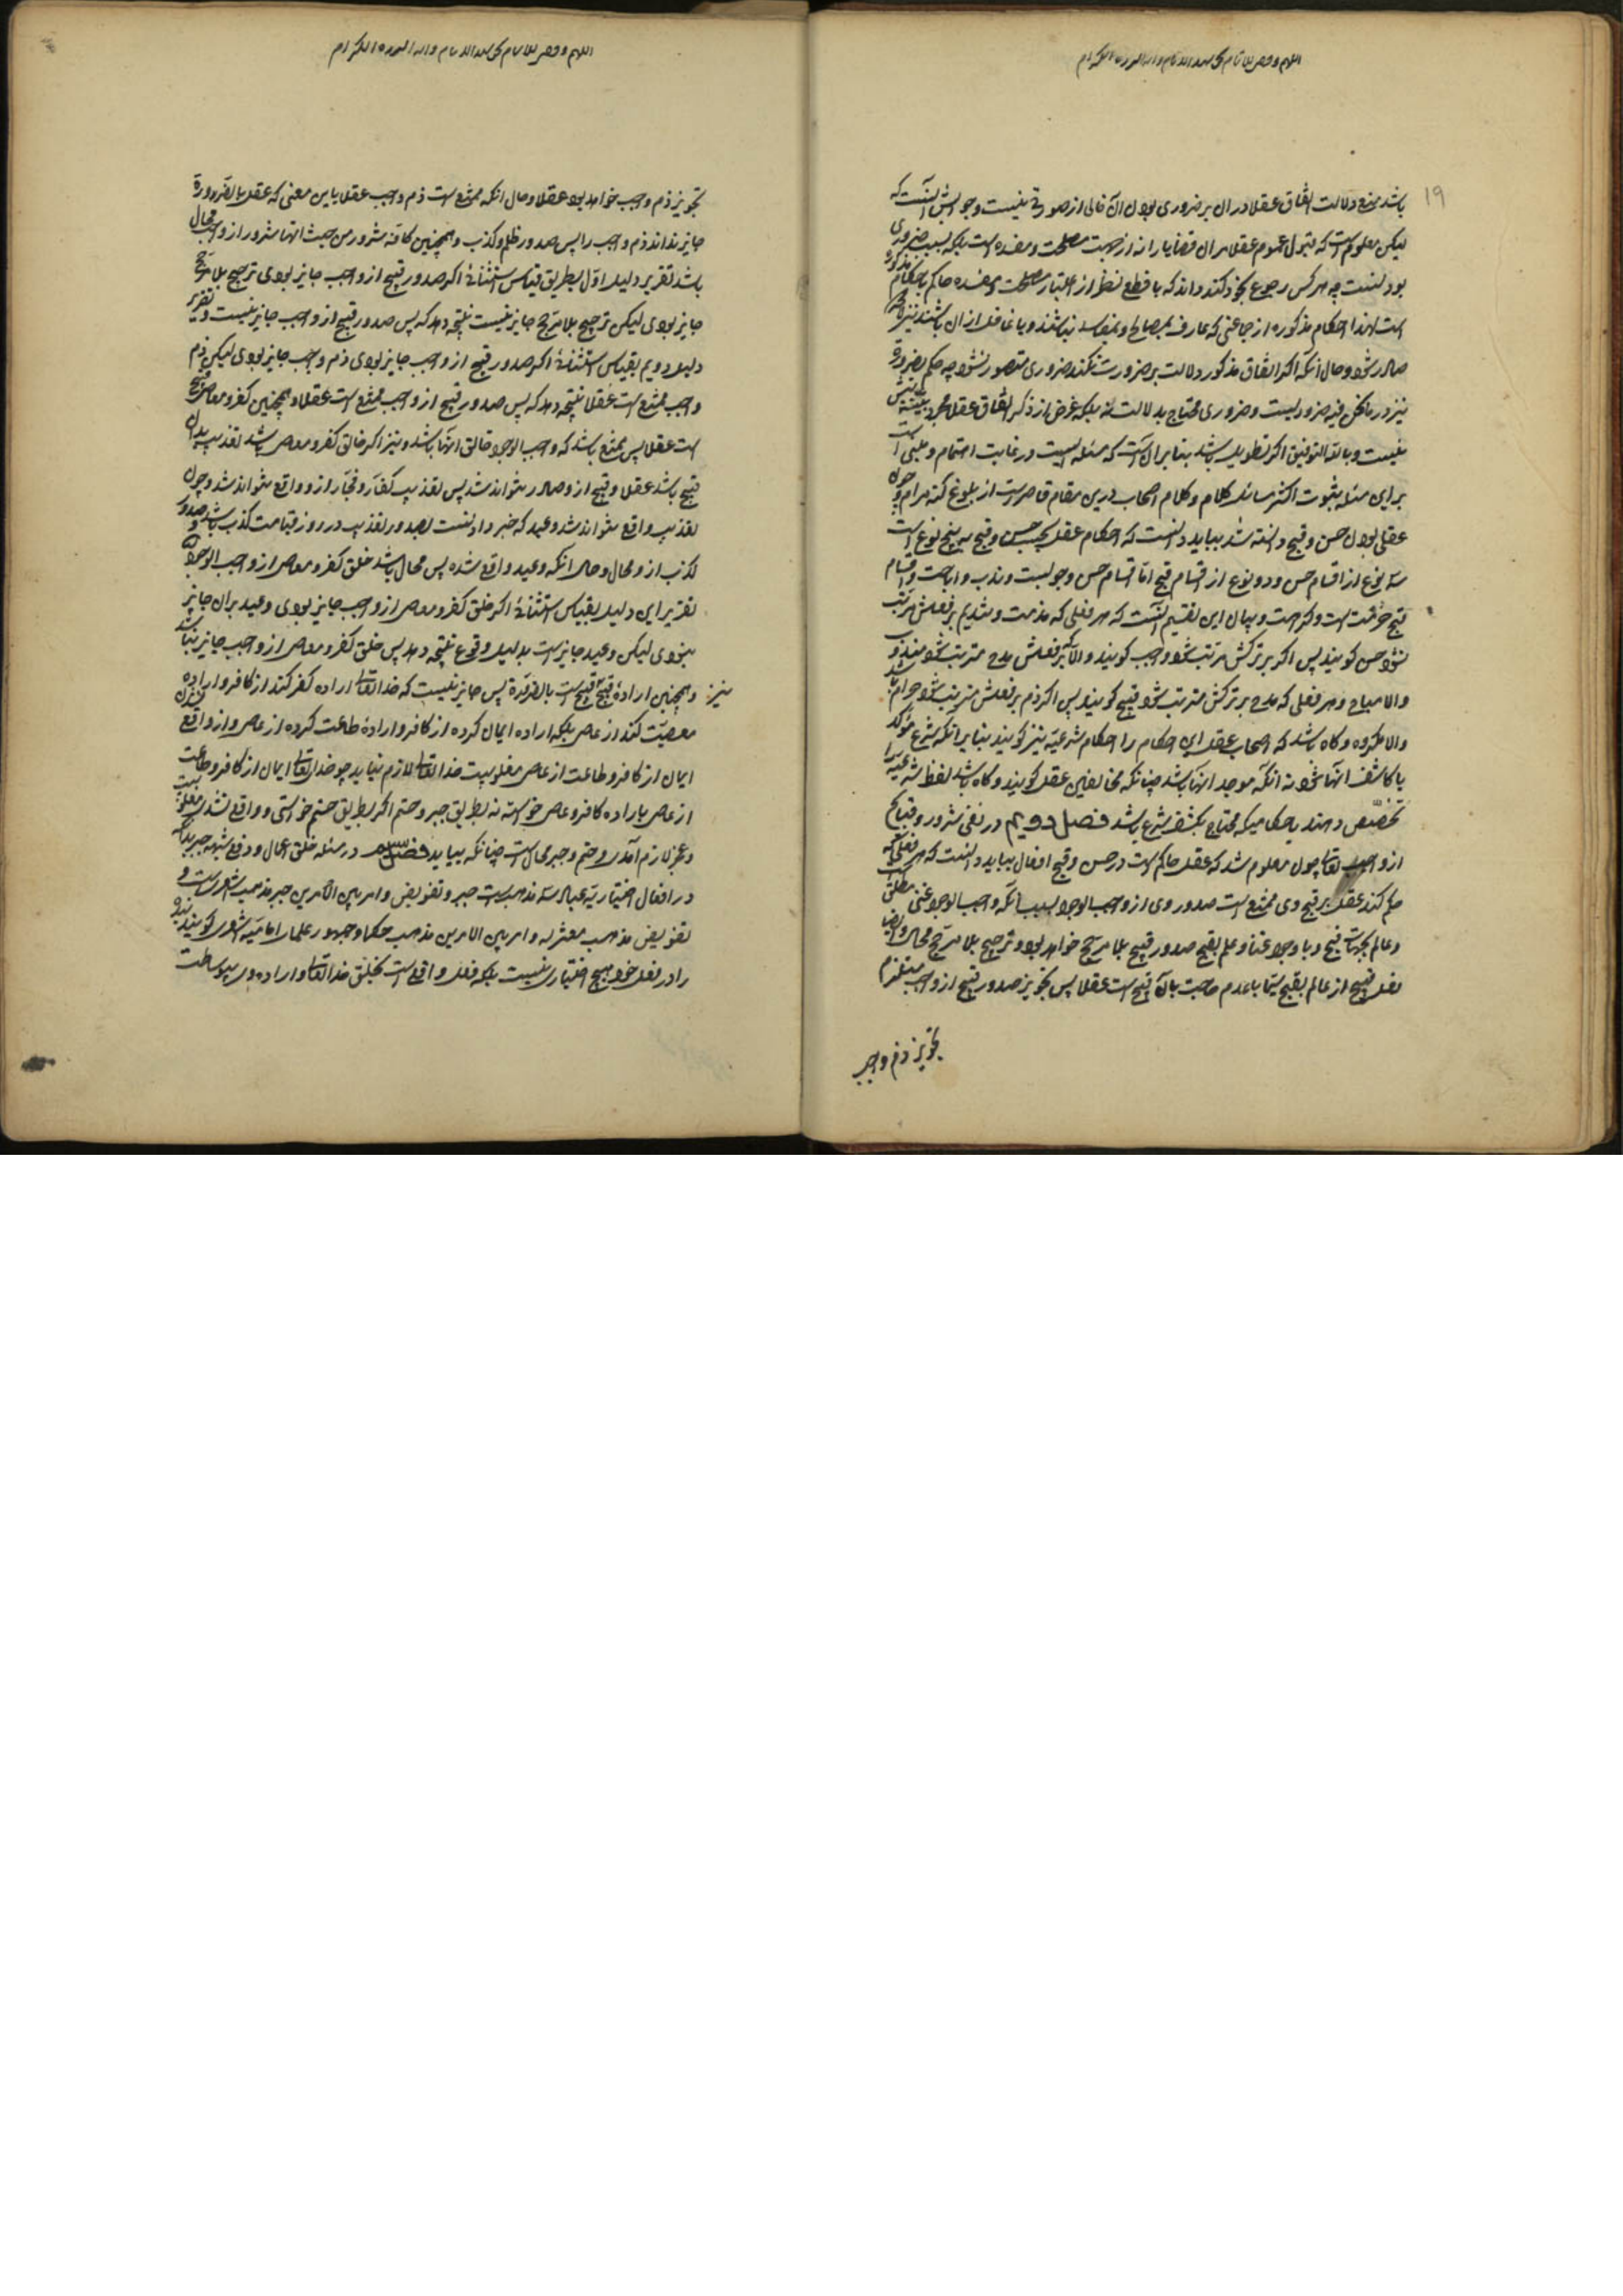 ۱۹
باشد منع دلالت اتفاق عقلا در ان بر ضروری بودن آن خالی از صورتی نیست و جوابش آنست که
لیکن معلومست که قبول عموم عقلا مر ان قضایا را نه از جهت مصلحت و مفسده است بلکه بسبب ضروری
بودنست چه هر کس رجوع بخود کند داند که با قطع نظر از اعتبار مصلحت و مفسده حاکم باحکام مذکوره
است لهذا احکام مذکوره از جماعتی که عارف بمصالح و مفاسد نباشند و یا غافل از ان باشند نیز
صادر شود و حال آنکه اگر اتفاق مذکور دلالت بر ضرورت نکند ضروری متصور نشود چه حکم بضرورة
نیز در ما نحن فیه ضروریست و ضروری محتاج بدلالت نه بلکه غرض از ذکر اتفاق عقلا مجرد تنبیه بیش
نیست و بالله التوفیق اگر تطویل باشد بنا بر ان است که مسئله ایست در غایت اهتمام و مبنی است
بر این مسئله ثبوت اکثر مسائل کلام و کلام اصحاب درین مقام قاصرست از بلوغ کنه مرام و چون
عقلی بودن حسن و قبح دانسته شد بباید دانست که احکام عقل بحسب حسن و قبح بر پنج نوع است
سه نوع از اقسام حسن و دو نوع از اقسام قبح اما اقسام حسن وجوبست و ندب و اباحت و اقسام
قبح حرمت است و کراهت و بیان این تقسیم آنست که هر فعلی که مذمت و تندیم بر فعلش مترتب
نشود حسن گویند پس اگر بر ترکش مرتب شود واجب گویند و الا اگر بر فعلش مدح مترتب شود مندوب
والا مباح و هر فعلی که مدح بر ترکش مترتب شود قبیح گویند پس اگر ذم بر فعلش مترتب شود حرام باشد
والا مکروه و گاه باشد که اصحاب عقل این احکام را احکام شرعیه نیز گویند بنا بر آنکه شرع مؤکد
یا کاشف انها شود نه آنکه موجد انها باشد چنانکه مخالفین عقل گویند و گاه باشد لفظ شرعیه را
تخصیص دهند باحکامیکه محتاج بکشف شرع باشد فصل دویم در نفی شرور و قبایح
از واجب تعالی چون معلوم شد که عقل حاکم است در حسن و قبح افعال بباید دانست که هر فعلی که
حکم کند عقل بر قبح وی ممتنع است صدور وی از واجب الوجود بسبب آنکه واجب الوجود غنی مطلق است
و عالم بجهات قبح و با وجود غنا و علم بقبح صدور قبیح بلا مرجح خواهد بود و ترجیح بلا مرجح محال و ایضا
فعل قبیح از عالم بقبح سیما با عدم حاجت بان قبیح است عقلا پس تجویز صدور قبیح از واجب مستلزم
تجویز ذم واجب
تجویز ذم واجب خواهد بود عقلا و حال آنکه ممتنع است ذم واجب عقلا باین معنی که عقل بالضرورة
جایز نداند ذم واجب را پس صدور ظلم و کذب و همچنین کافه شرور من حیث انها شرور از واجب محال
باشد تقریر دلیل اول بطریق قیاس استثنائی اگر صدور قبیح از واجب جایز بودی ترجیح بلا مرجح
جایز بودی لیکن ترجیح بلا مرجح جایز نیست نتیجه دهد که پس صدور قبیح از واجب جایز نیست و تقریر
دلیل دویم بقیاس استثنائی اگر صدور قبیح از واجب جایز بودی ذم واجب جایز بودی لیکن ذم
واجب ممتنع است عقلا نتیجه دهد که پس صدور قبیح از واجب ممتنع است عقلا و همچنین کفر و معاصی قبیح
است عقلا پس ممتنع باشد که واجب الوجود خالق انها باشد و نیز اگر خالق کفر و معاصی باشد تعذیب بدان
قبیح باشد عقلا و قبیح از و صادر نتواند شد پس تعذیب کفار و فجار از و واقع نتواند شد و چون
تعذیب واقع نتواند شد وعید که خبر دادنست بصدور تعذیب در روز قیامت کذب باشد و صدور
کذب از و محال و حال آنکه وعید واقع شده پس محال باشد خلق کفر و معاصی از واجب الوجود
تقریر این دلیل بقیاس استثنائی اگر خلق کفر و معاصی از واجب جایز بودی وعید بران جایز
نبودی لیکن وعید جایز است بدلیل وقوع نتیجه دهد پس خلق کفر و معاصی از واجب جایز نباشد
و همچنین اراده قبیح قبیح است بالضرورة پس جایز نیست که خدا تعالی اراده کفر کند از کافر و اراده
نیز
معصیت کند از عاصی بلکه اراده ایمان کرده از کافر و اراده طاعت کرده از عاصی و از واقع
ایمان از کافر و طاعت از عاصی مغلوبیت خدا تعالی لازم نیاید چو خدا تعالی ایمان از کافر و طاعت
از عاصی باراده کافر و عاصی خواسته نه بطریق جبر و حتم اگر بطریق حتم خواستی و واقع نشدی مغلوبیت
و عجز لازم آمدی و حتم و جبر محال است چنانکه بیاید فصل در مسئله خلق اعمال و دفع شبهه جبر بدانکه
در افعال اختیاریه عباد سه مذهب است جبر و تفویض و امر بین الامرین جبر مذهب اشعریست و
تفویض مذهب معتزله و امر بین الامرین مذهب حکما و جمهور علماء امامیه اشعری گویند بنده
را در فعل خود هیچ اختیاری نیست بلکه فعل واقع است بخلق خدا تعالی و اراده وی بیواسطه